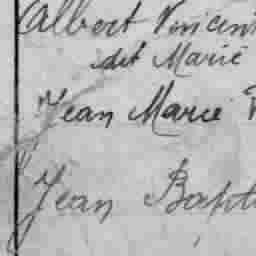 Albert Vincent
dit Marie
Jean Marie
Jean Bapt